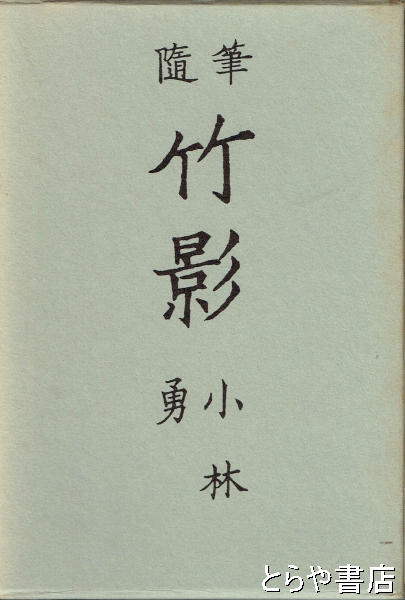 筆隨
竹影
小林勇
とらや書店